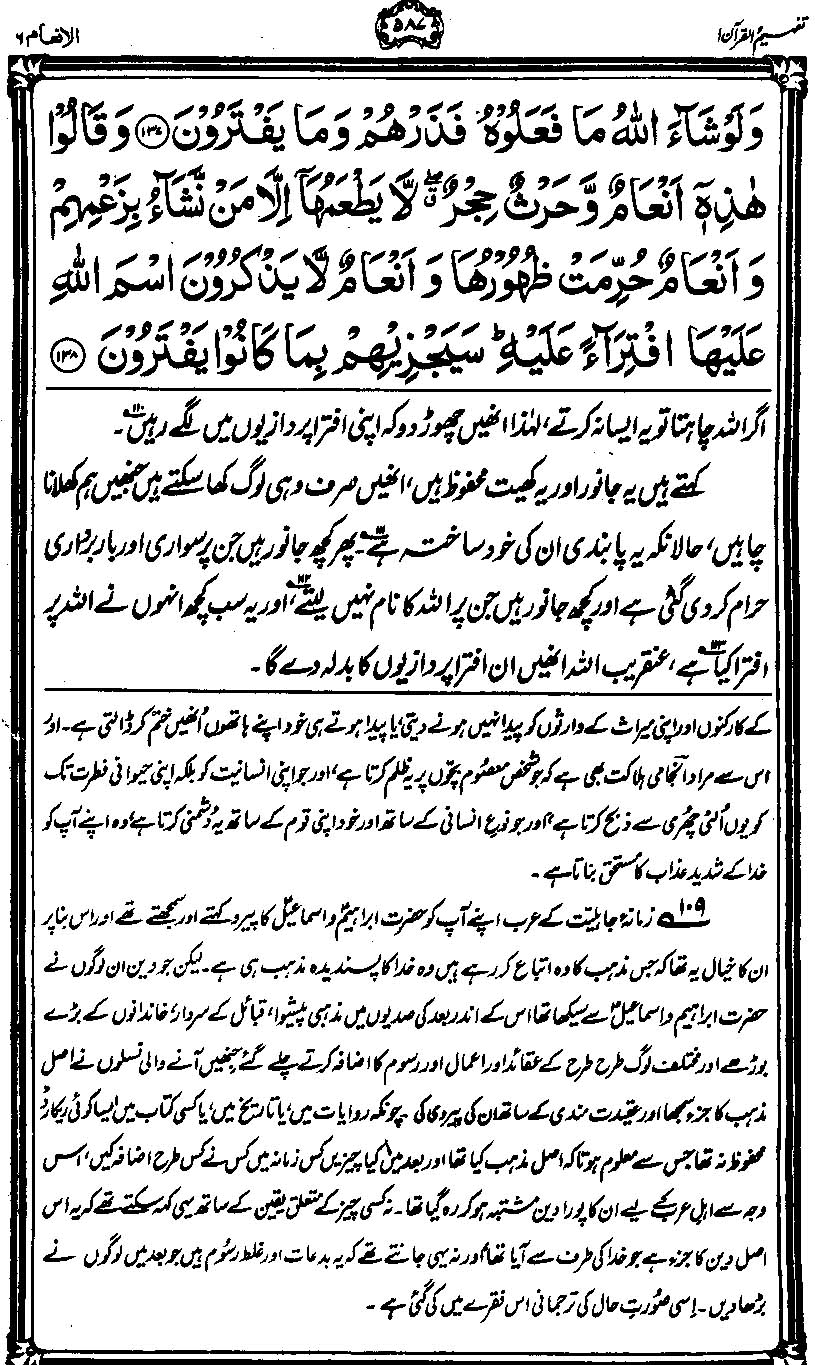 تفہیم القرآن ۱
۵۸۷
الانعام ۶
وَلَوْ شَآءَ اللّٰهُ مَا فَعَلُوْهُ فَذَرْهُمْ وَمَا يَفْتَرُوْنَ ﴿۱۳۷﴾ وَقَالُوْا
هٰذِهٖٓ اَنْعَامٌ وَّحَرْثٌ حِجْرٌ ۖ لَّا يَطْعَمُهَآ اِلَّا مَنْ نَّشَآءُ بِزَعْمِهِمْ
وَاَنْعَامٌ حُرِّمَتْ ظُهُوْرُهَا وَاَنْعَامٌ لَّا يَذْكُرُوْنَ اسْمَ اللّٰهِ
عَلَيْهَا افْتِرَآءً عَلَيْهِ ؕ سَيَجْزِيْهِمْ بِمَا كَانُوْا يَفْتَرُوْنَ ﴿۱۳۸﴾
اگر اللہ چاہتا تو یہ ایسا نہ کرتے، لہٰذا انھیں چھوڑ دو کہ اپنی افترا پردازیوں میں لگے رہیں۱۱۰۔
کہتے ہیں یہ جانور اور یہ کھیت محفوظ ہیں، انھیں صرف وہی لوگ کھا سکتے ہیں جنھیں ہم کھلانا
چاہیں، حالانکہ یہ پابندی ان کی خود ساختہ ہے۱۱۱۔ پھر کچھ جانور ہیں جن پر سواری اور بار برداری
حرام کر دی گئی ہے اور کچھ جانور ہیں جن پر اللہ کا نام نہیں لیتے۱۱۲، اور یہ سب کچھ انہوں نے اللہ پر
افترا کیا ہے۱۱۳، عنقریب اللہ انھیں ان افترا پردازیوں کا بدلہ دے گا۔
کے کارکنوں اور اپنی میراث کے وارثوں کو پیدا نہیں ہونے دیتی، یا پیدا ہوتے ہی خود اپنے ہاتھوں اُنھیں ختم کر ڈالتی ہے۔ اور
اس سے مراد انجامی ہلاکت بھی ہے کہ جو شخص معصوم بچّوں پر یہ ظلم کرتا ہے، اور جو اپنی انسانیت کو بلکہ اپنی حیوانی فطرت تک
کو یوں اُلٹی چھُری سے ذبح کرتا ہے، اور جو نوعِ انسانی کے ساتھ اور خود اپنی قوم کے ساتھ یہ دُشمنی کرتا ہے، وہ اپنے آپ کو
خدا کے شدید عذاب کا مستحق بناتا ہے۔
۱۰۹ زمانۂ جاہلیّت کے عرب اپنے آپ کو حضرت ابراہیمؑ و اسماعیلؑ کا پیرو کہتے اور سمجھتے تھے اور اس بنا پر
ان کا خیال یہ تھا کہ جس مذہب کا وہ اتباع کر رہے ہیں وہ خدا کا پسندیدہ مذہب ہی ہے۔ لیکن جو دین ان لوگوں نے
حضرت ابراہیم و اسماعیلؑ سے سیکھا تھا اس کے اندر بعد کی صدیوں میں مذہبی پیشوا، قبائل کے سردار، خاندانوں کے بڑے
بوڑھے اور مختلف لوگ طرح طرح کے عقائد اور اعمال اور رسوم کا اضافہ کرتے چلے گئے جنھیں آنے والی نسلوں نے اصل
مذہب کا جزء سمجھا اور عقیدت مندی کے ساتھ ان کی پیروی کی۔ چونکہ روایات میں، یا تاریخ میں، یا کسی کتاب میں ایسا کوئی ریکارڈ
محفوظ نہ تھا جس سے معلوم ہوتا کہ اصل مذہب کیا تھا اور بعد میں کیا چیزیں کس زمانہ میں کس نے کس طرح اضافہ کیں، اس
وجہ سے اہلِ عرب کے لیے ان کا پورا دین مشتبہ ہو کر رہ گیا تھا۔ نہ کسی چیز کے متعلق یقین کے ساتھ یہی کہہ سکتے تھے کہ یہ اس
اصل دین کا جزء ہے جو خدا کی طرف سے آیا تھا، اور نہ یہی جانتے تھے کہ یہ بدعات اور غلط رسُوم ہیں جو بعد میں لوگوں نے
بڑھا دیں۔ اِسی صُورتِ حال کی ترجمانی اس فقرے میں کی گئی ہے۔